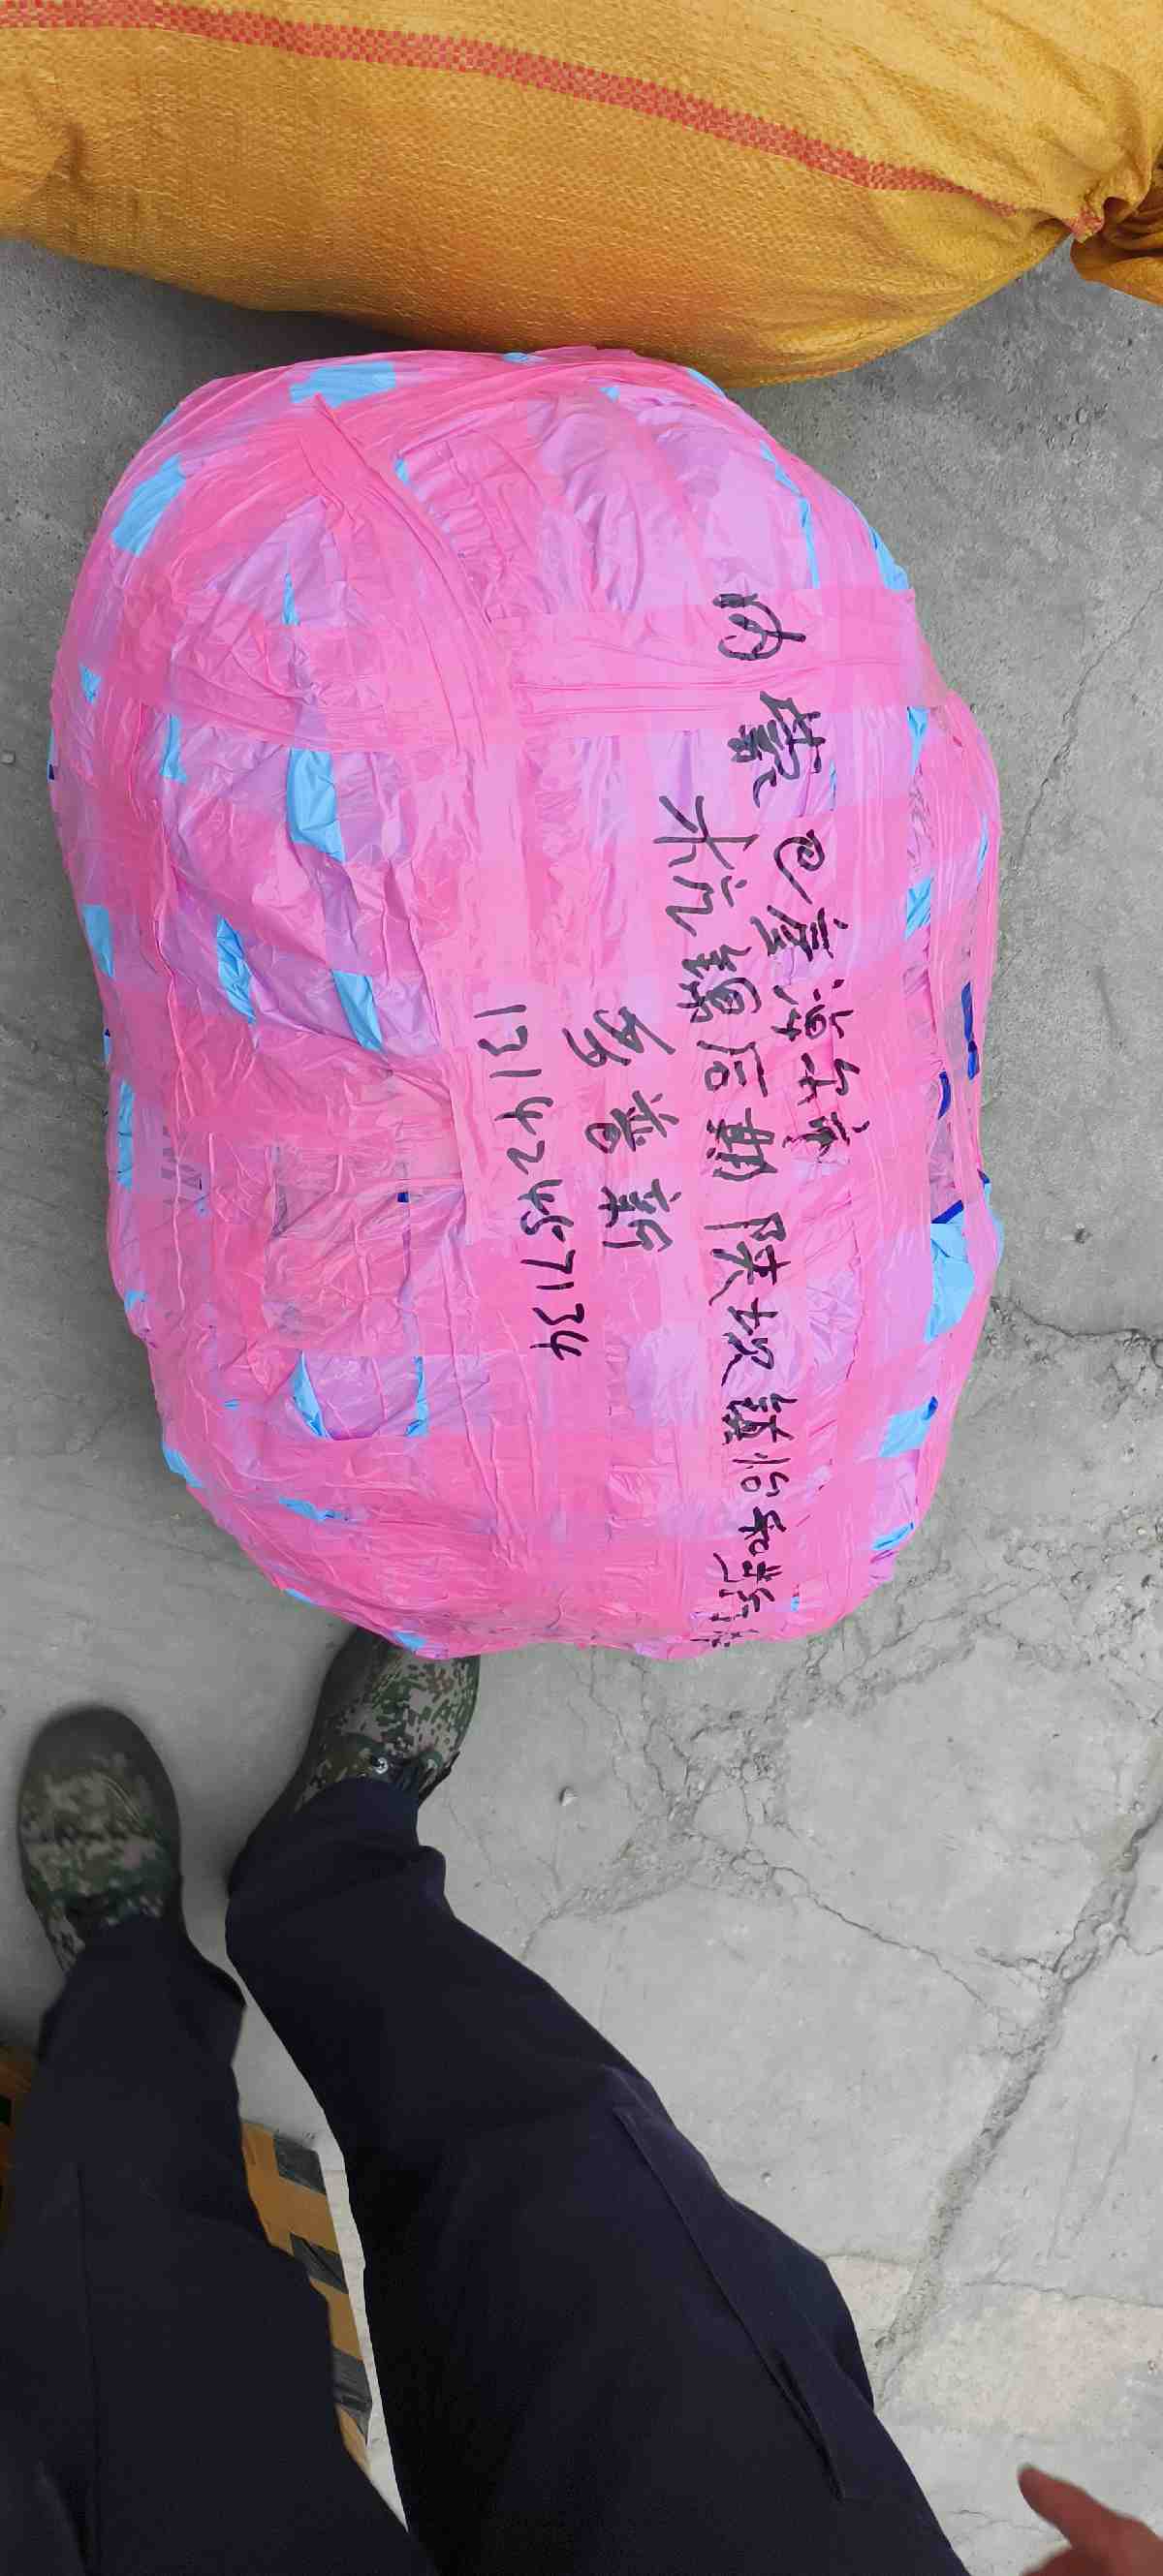 内蒙巴彦淖尔市
杭锦后旗陕坝镇怡和新
新
13142487134